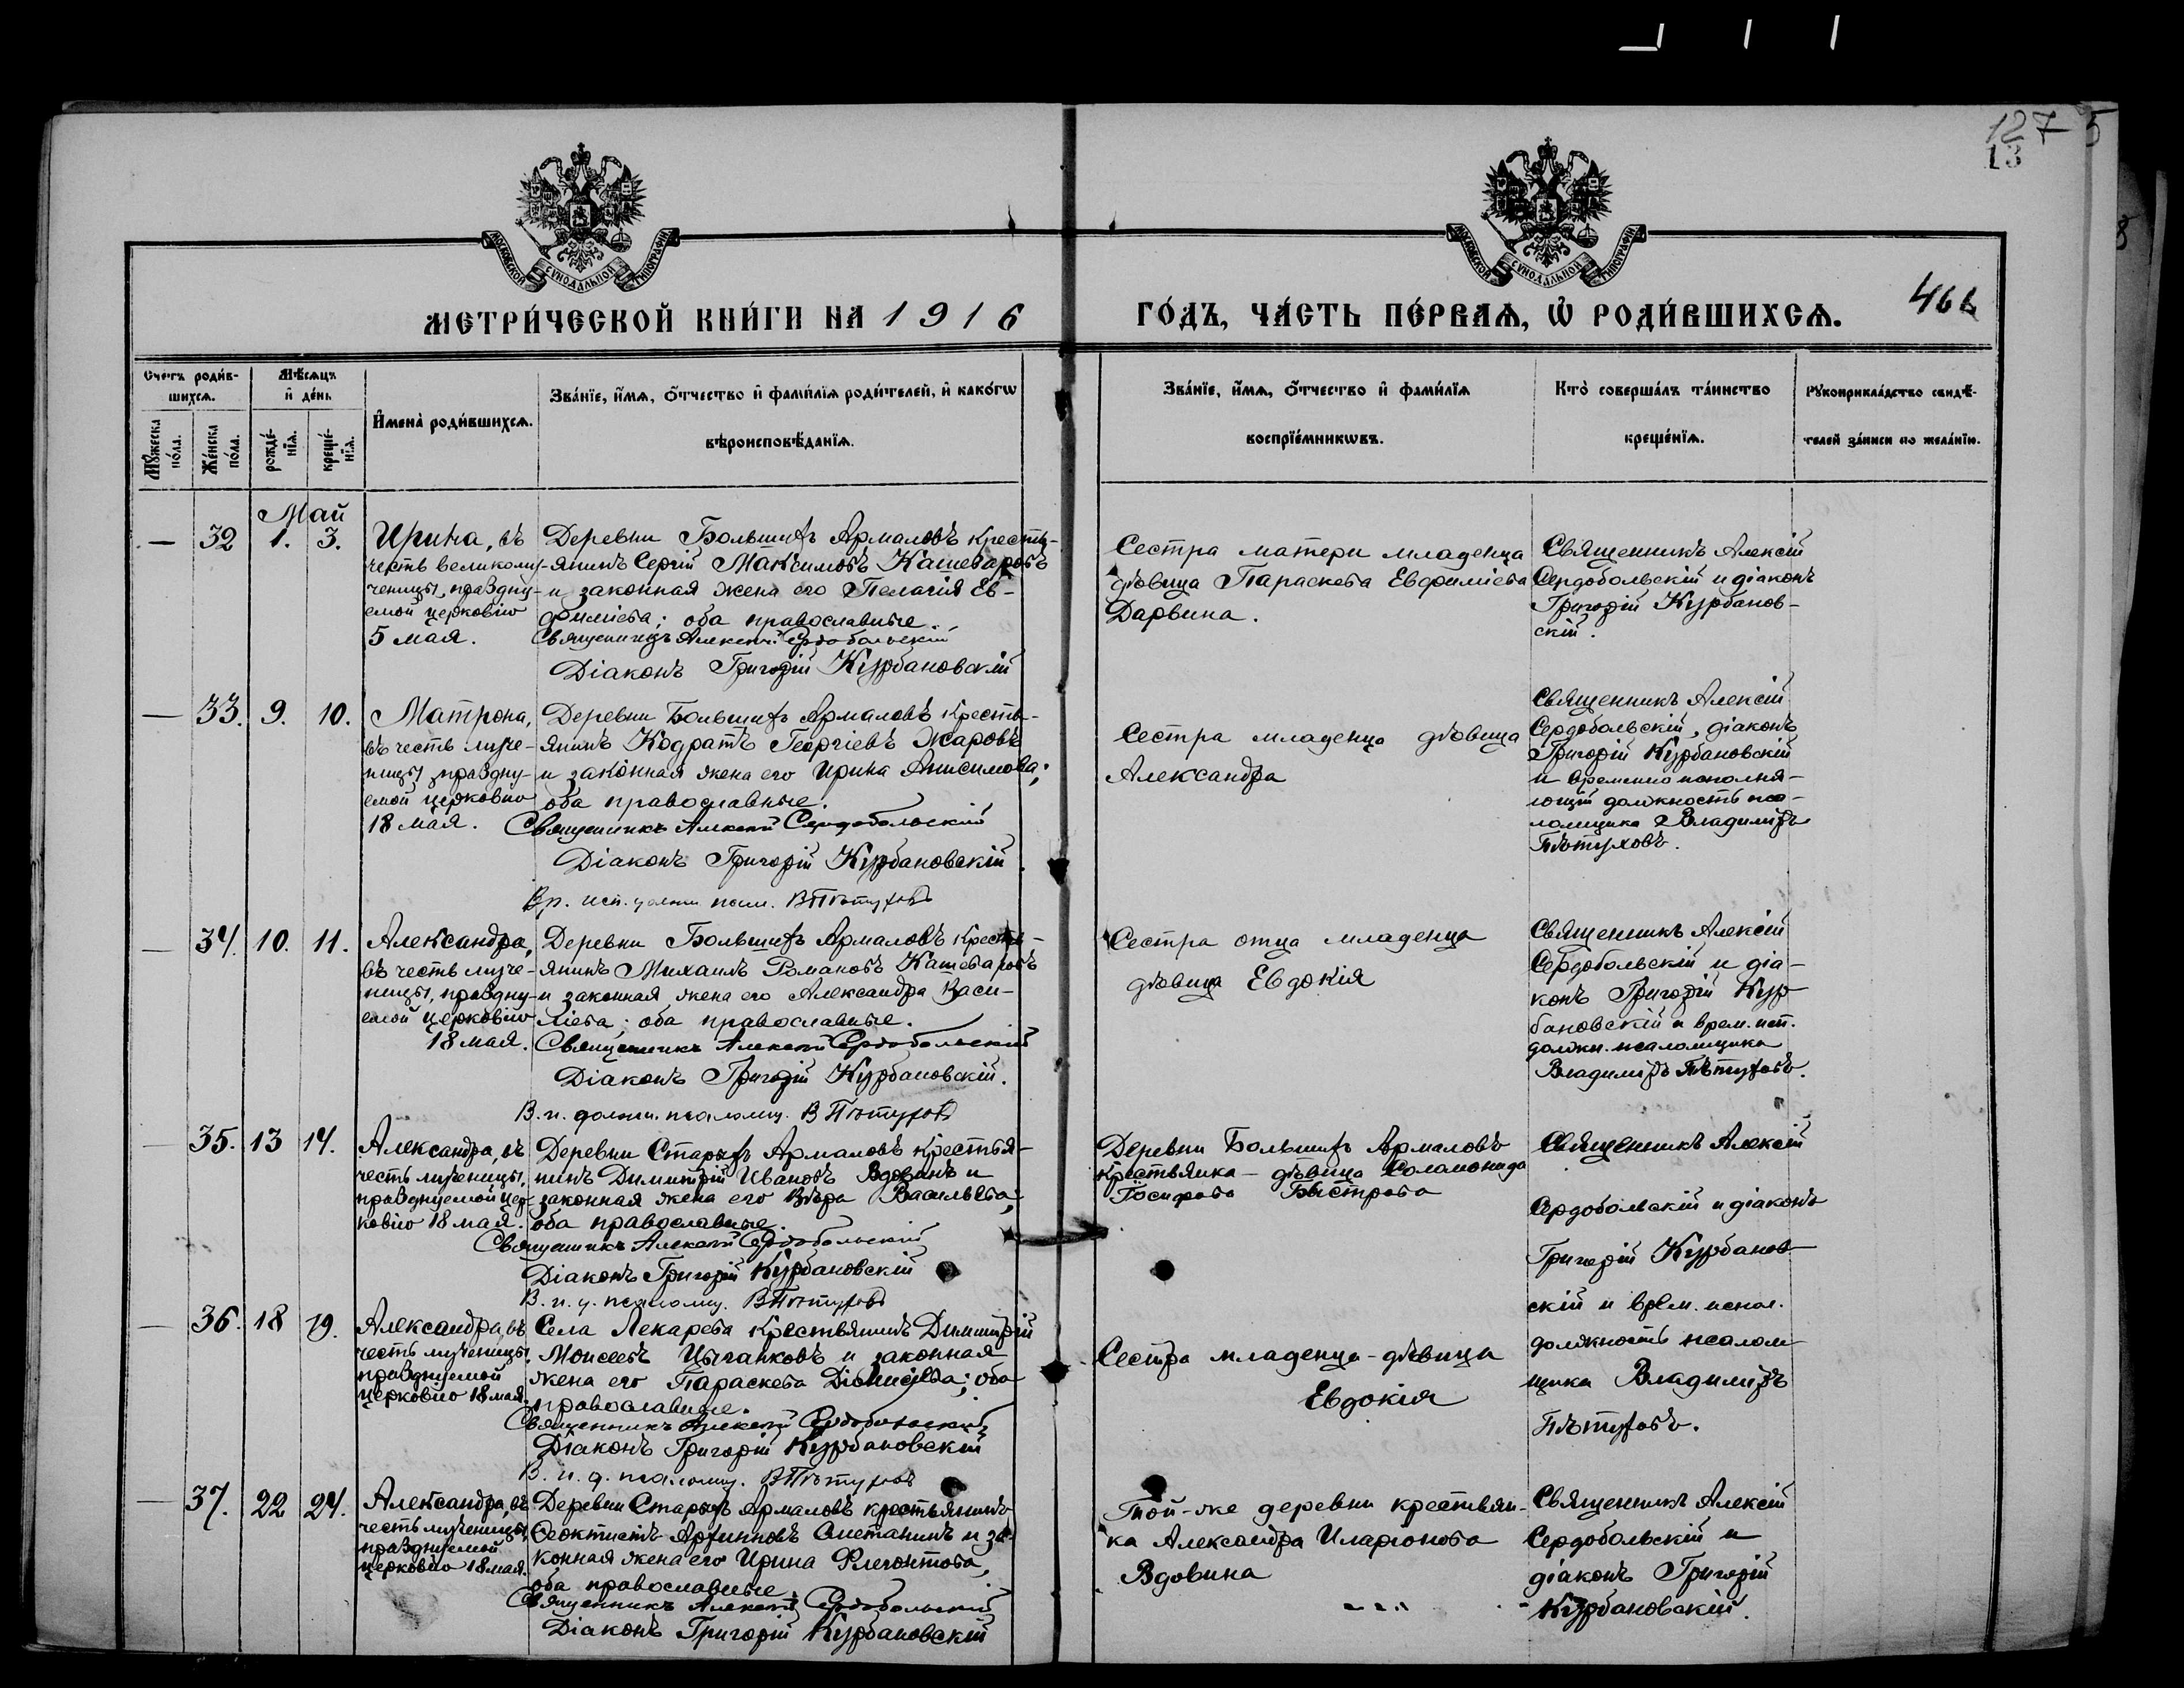 127 5
13
8
МОСКОВСКОЙ СѴНОДАЛЬНОЙ ТИПОГРАФІИ
МОСКОВСКОЙ СѴНОДАЛЬНОЙ ТИПОГРАФІИ
МЕТРИ́ЧЕСКОЙ КНИ́ГИ НА 1916
ГО́ДЪ, ЧА́СТЬ ПЕ́РВАѦ, Ѽ РОДИ́ВШИХСѦ.
466
Счетъ роди́в-
шихсѧ.
Мꙋ́жеска по́ла.
Же́нска по́ла.
Мѣ́сѧцъ
и҆ де́нь
рожде́-
нїѧ.
креще́-
нїѧ.
И҆мена̀ роди́вшихсѧ.
Зва́нїе, и҆́мѧ, о҆́тчество и҆ фами́лїѧ роди́телей, и҆ како́гѡ
вѣроисповѣ́данїѧ.
Зва́нїе, и҆́мѧ, о҆́тчество и҆ фами́лїѧ
воспрїе́мникѡвъ.
Кто̀ соверша́лъ та́инство
креще́нїѧ.
Рꙋкоприкла́дство свидѣ́-
телей за́писи по жела́нїю.
Май
— 32 1. 3.
Ирина, въ
честь великому-
ченицы, праздну-
емой церковію
5 мая.
Деревни Большихъ Армаловъ крестья-
янинъ Сергій Максимовъ Кашеваровъ
и законная жена его Пелагія Ев-
фиміева; оба православные.
Священникъ Алексій Сердобольскій
Діаконъ Григорій Курбановскій
Сестра матери младенца
дѣвица Параскева Евфиміева
Дарвина.
Священникъ Алексій
Сердобольскій и діаконъ
Григорій Курбанов-
скій.
— 33. 9. 10.
Матрона,
въ честь муче-
ницы праздну-
емой церковію
18 мая.
Деревни Большихъ Армаловъ кресть-
янинъ Кодратъ Георгіевъ Жаровъ
и законная жена его Ирина Анисимова;
оба православные.
Священникъ Алексій Сердобольскій
Діаконъ Григорій Курбановскій
Вр. исп. должн. псал. В Пѣтуховъ
Сестра младенца дѣвица
Александра
Священникъ Алексій
Сердобольскій, діаконъ
Григорій Курбановскій
и временно исполня-
ющій должность пса-
ломщика Владиміръ
Пѣтуховъ.
— 34. 10. 11.
Александра,
въ честь муче-
ницы, праздну-
емой церковію
18 мая.
Деревни Большихъ Армаловъ кресть-
янинъ Михаилъ Романовъ Кашеваровъ
и законная жена его Александра Васи-
ліева; оба православные.
Священникъ Алексій Сердобольскій
Діаконъ Григорій Курбановскій.
В. и. должн. псаломщ. В Пѣтуховъ
Сестра отца младенца
дѣвица Евдокія
Священникъ Алексій
Сердобольскій и діа-
конъ Григорій Кур-
бановскій и врем. исп.
должн. псаломщика
Владиміръ Пѣтуховъ.
— 35. 13 14.
Александра, въ
честь мученицы,
празднуемой цер-
ковію 18 мая.
Деревни Старыхъ Армаловъ крестья-
нинъ Димитрій Ивановъ Вдовинъ и
законная жена его Вѣра Васильева;
оба православные.
Священникъ Алексій Сердобольскій
Діаконъ Григорій Курбановскій
В. и. д. псаломщ. В Пѣтуховъ
Деревни Большихъ Армаловъ
крестьянка - дѣвица Соломонида
Іосифова Быстрова
Священникъ Алексій
Сердобольскій и діаконъ
Григорій Курбанов-
скій и врем. испол.
должность псалом-
щика Владиміръ
Пѣтуховъ.
— 36. 18 19.
Александра, въ
честь мученицы
празднуемой
церковію 18 мая.
Села Лекарева крестьянинъ Димитрій
Моисеевъ Цыганковъ и законная
жена его Параскева Діонисіева; оба
православные.
Священникъ Алексій Сердобольскій
Діаконъ Григорій Курбановскій
В. и. д. псаломщ. В Пѣтуховъ
Сестра младенца - дѣвица
Евдокія
— 37. 22 24.
Александра, въ
честь мученицы,
празднуемой
церковію 18 мая.
Деревни Старыхъ Армаловъ крестьянинъ
Ѳеоктистъ Архиповъ Сметанинъ и за-
конная жена его Ирина Флегонтова,
оба православные.
Священникъ Алексій Сердобольскій
Діаконъ Григорій Курбановскій
Той-же деревни крестьян-
ка Александра Иларіонова
Вдовина
Священникъ Алексій
Сердобольскій и
діаконъ Григорій
Курбановскій.